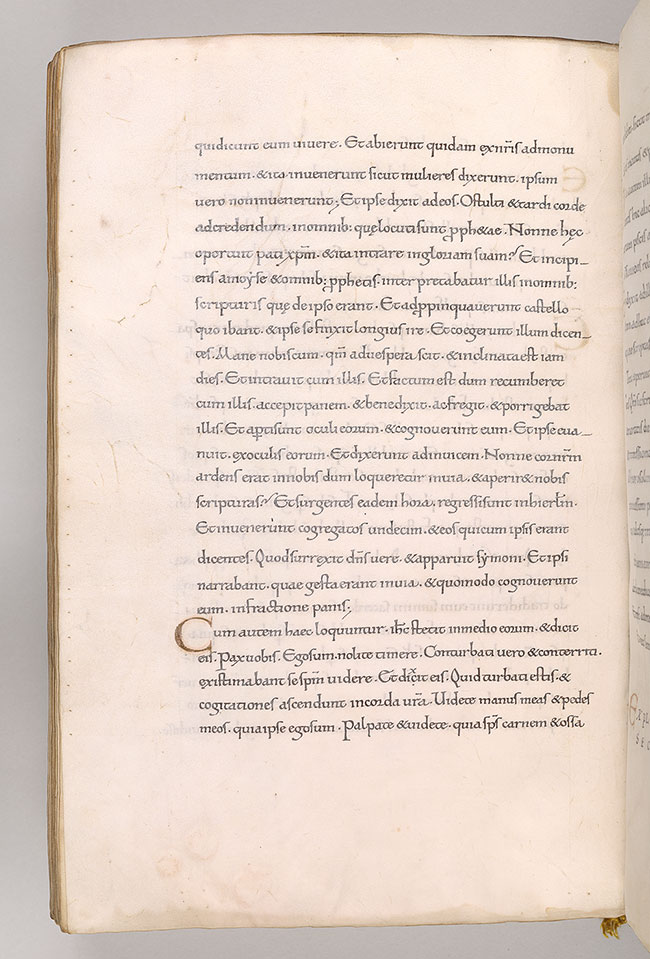 qui dicunt eum vivere. Et abierunt quidam ex nr̄is ad monu
mentum. & ita invenerunt sicut mulieres dixerunt. ipsum
vero non invenerunt; Et ipse dixit ad eos. O stulti & tardi corde
ad credendum. in omnib: quę locuti sunt ꝓph&ae. Nonne hęc
oportuit pati xp̄m. & ita intrare in gloriam suam? Et incipi_
ens a moyse & omnib; ꝓphetis. interpretabatur illis in omnib:
scripturis quę de ipso erant. Et adꝓpinquaverunt castello
quo ibant. & ipse se finxit longius ire. Et coegerunt illum dicen_
tes. Mane nobiscum. qm̄ advesperascit. & inclinata est iam
dies. Et intravit cum illis. Et factum est dum recumberet
cum illis. accepit panem. & benedixit. ac fregit. & porrigebat
illis. Et aꝑti sunt oculi eorum. & cognoverunt eum. Et ipse eva_
nuit. ex oculis eorum. Et dixerunt ad invicem. Nonne cor nr̄m
ardens erat in nobis dum loqueretur in via. & aperir& nobis
scripturas? Et surgentes eadem hora. regressi sunt in hierl̄m.
Et invenerunt cogregatos undecim. & eos qui cum ipsis erant
dicentes. Quod surrexit dn̄s vere. & apparuit symoni. Et ipsi
narrabant. quae gesta erant in via. & quomodo cognoverunt
eum. in fractione panis;
Cum autem haec loquuntur. ih̄c stetit in medio eorum. & dicit
eis. Pax vobis. Ego sum. nolite timere. Conturbati vero & conterriti.
existimabant se sp̄m videre. Et dixit eis. Quid turbati estis. &
cogitationes ascendunt in corda vr̄a. Videte manus meas & pedes
meos. quia ipse ego sum. Palpate & videte. quia sp̄s carnem & ossa